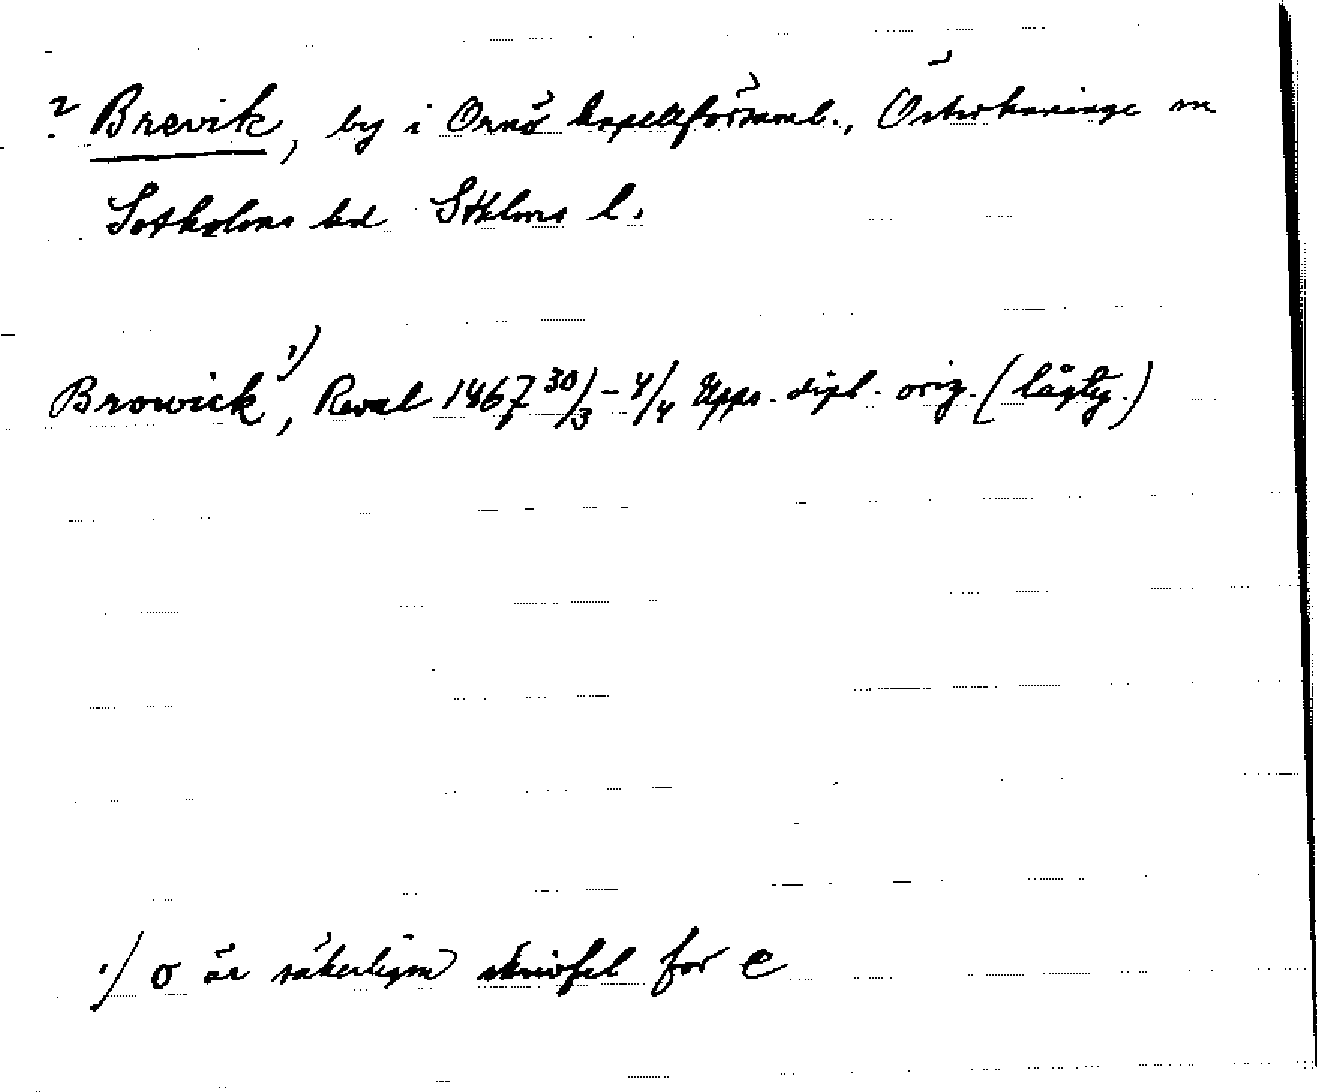 ? Brevik, by i Ornö kapellförsaml., Österhaninge sn
Sotholms hd Sthlms l.
Browick ¹), Reval 1467 30/3 - 4/4 Upps. dipl. orig. (lågty.)
¹) o är säkerligen skrivfel för e